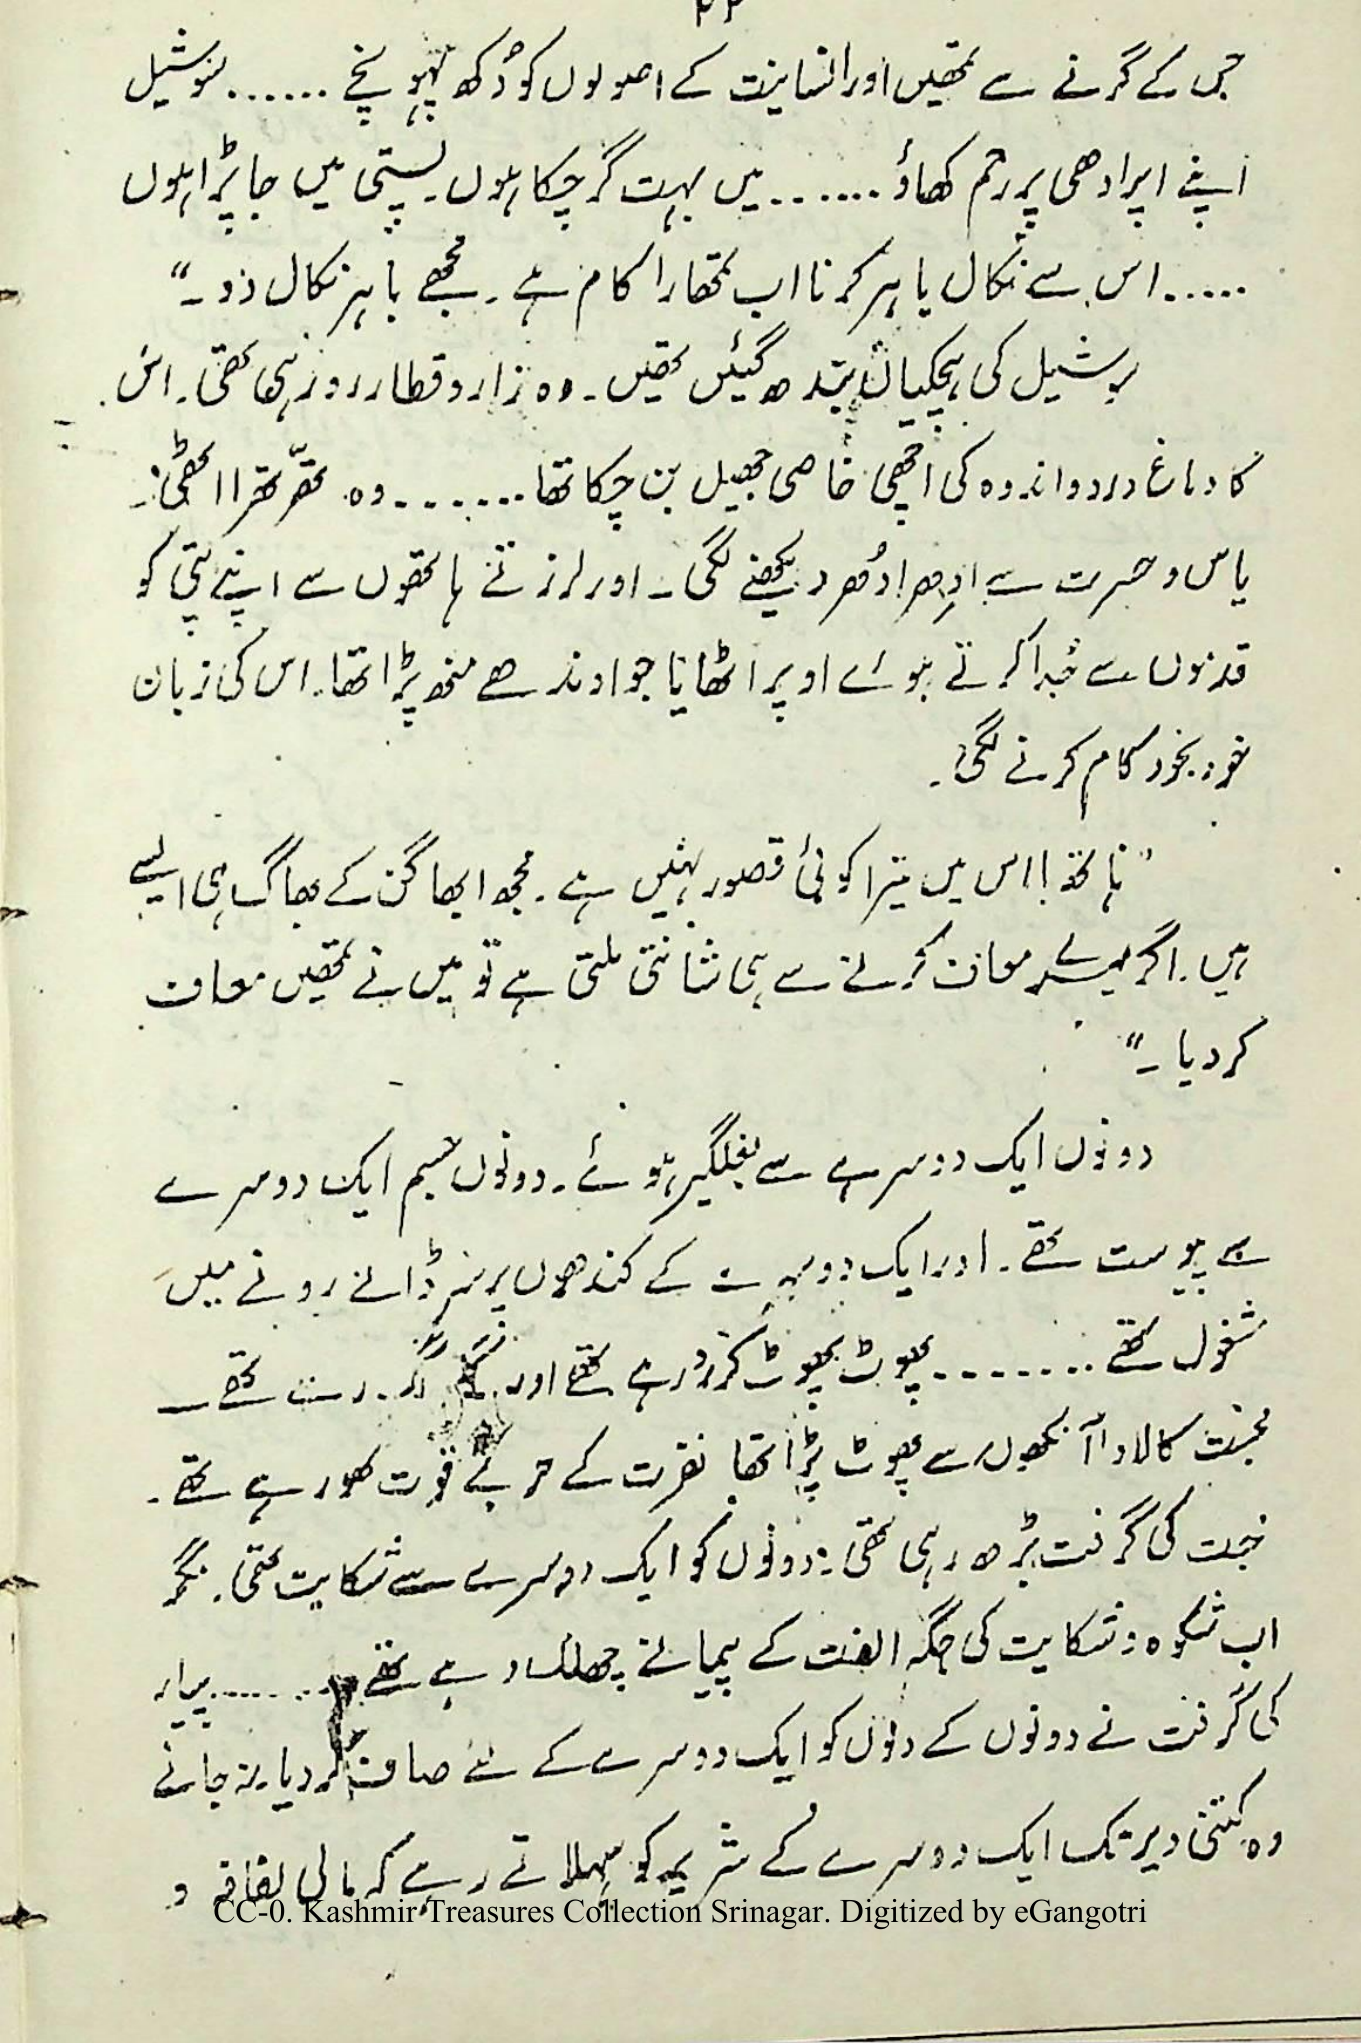 جس کے گرنے سے تمھیں اور انسانیت کے اصولوں کو دُکھ پہونچے ...... سوشیل
اپنے اپرادھی پر رحم کھاؤ ....... میں بہت گر چکا ہوں۔ پستی میں جا پڑا ہوں
..... اس سے نکال باہر کرنا اب تمھارا کام ہے۔ مجھے باہر نکال دو۔"
سوشیل کی ہچکیاں بندھ گئیں تھیں۔ وہ زار و قطار رو رہی تھی۔ اس
کا دماغ درد و اندوہ کی اچھی خاصی جھیل بن چکا تھا ....... وہ تھرّتھرا اٹھی۔
یاس و حسرت سے اِدھر اُدھر دیکھنے لگی۔ اور لرزتے ہاتھوں سے اپنے پتی کو
قدموں سے جُدا کرتے ہوئے اوپر اٹھایا جو اوندھے منھ پڑا تھا۔ اس کی زبان
خود بخود کام کرنے لگی۔
"ناتھ! اس میں تیرا کوئی قصور نہیں ہے۔ مجھ ابھاگن کے بھاگ ہی ایسے
ہیں۔ اگر میرے معاف کرنے سے ہی شانتی ملتی ہے تو میں نے تمھیں معاف
کر دیا۔"
دونوں ایک دوسرے سے بغلگیر ہوئے۔ دونوں جسم ایک دوسرے
سے پیوست تھے۔ اور ایک دوسرے کے کندھوں پر سر ڈالے رونے میں
مشغول تھے ....... پھوٹ پھوٹ کر رو رہے تھے اور تھے۔
محبت کا لاوا آنکھوں سے پھوٹ پڑا تھا نفرت کے حربے قوت کھو رہے تھے۔
محبت کی گرفت بڑھ رہی تھی۔ دونوں کو ایک دوسرے سے شکایت تھی۔ مگر
اب شکوہ و شکایت کی جگہ الفت کے پیمانے چھلک رہے تھے ....... پیار
کی گرفت نے دونوں کے دلوں کو ایک دوسرے کے لئے صاف کر دیا۔ نہ جانے
وہ کتنی دیر تک ایک دوسرے کے شریر کو سہلاتے رہے کہ مالی لفافہ و
CC-0. Kashmir Treasures Collection Srinagar. Digitized by eGangotri